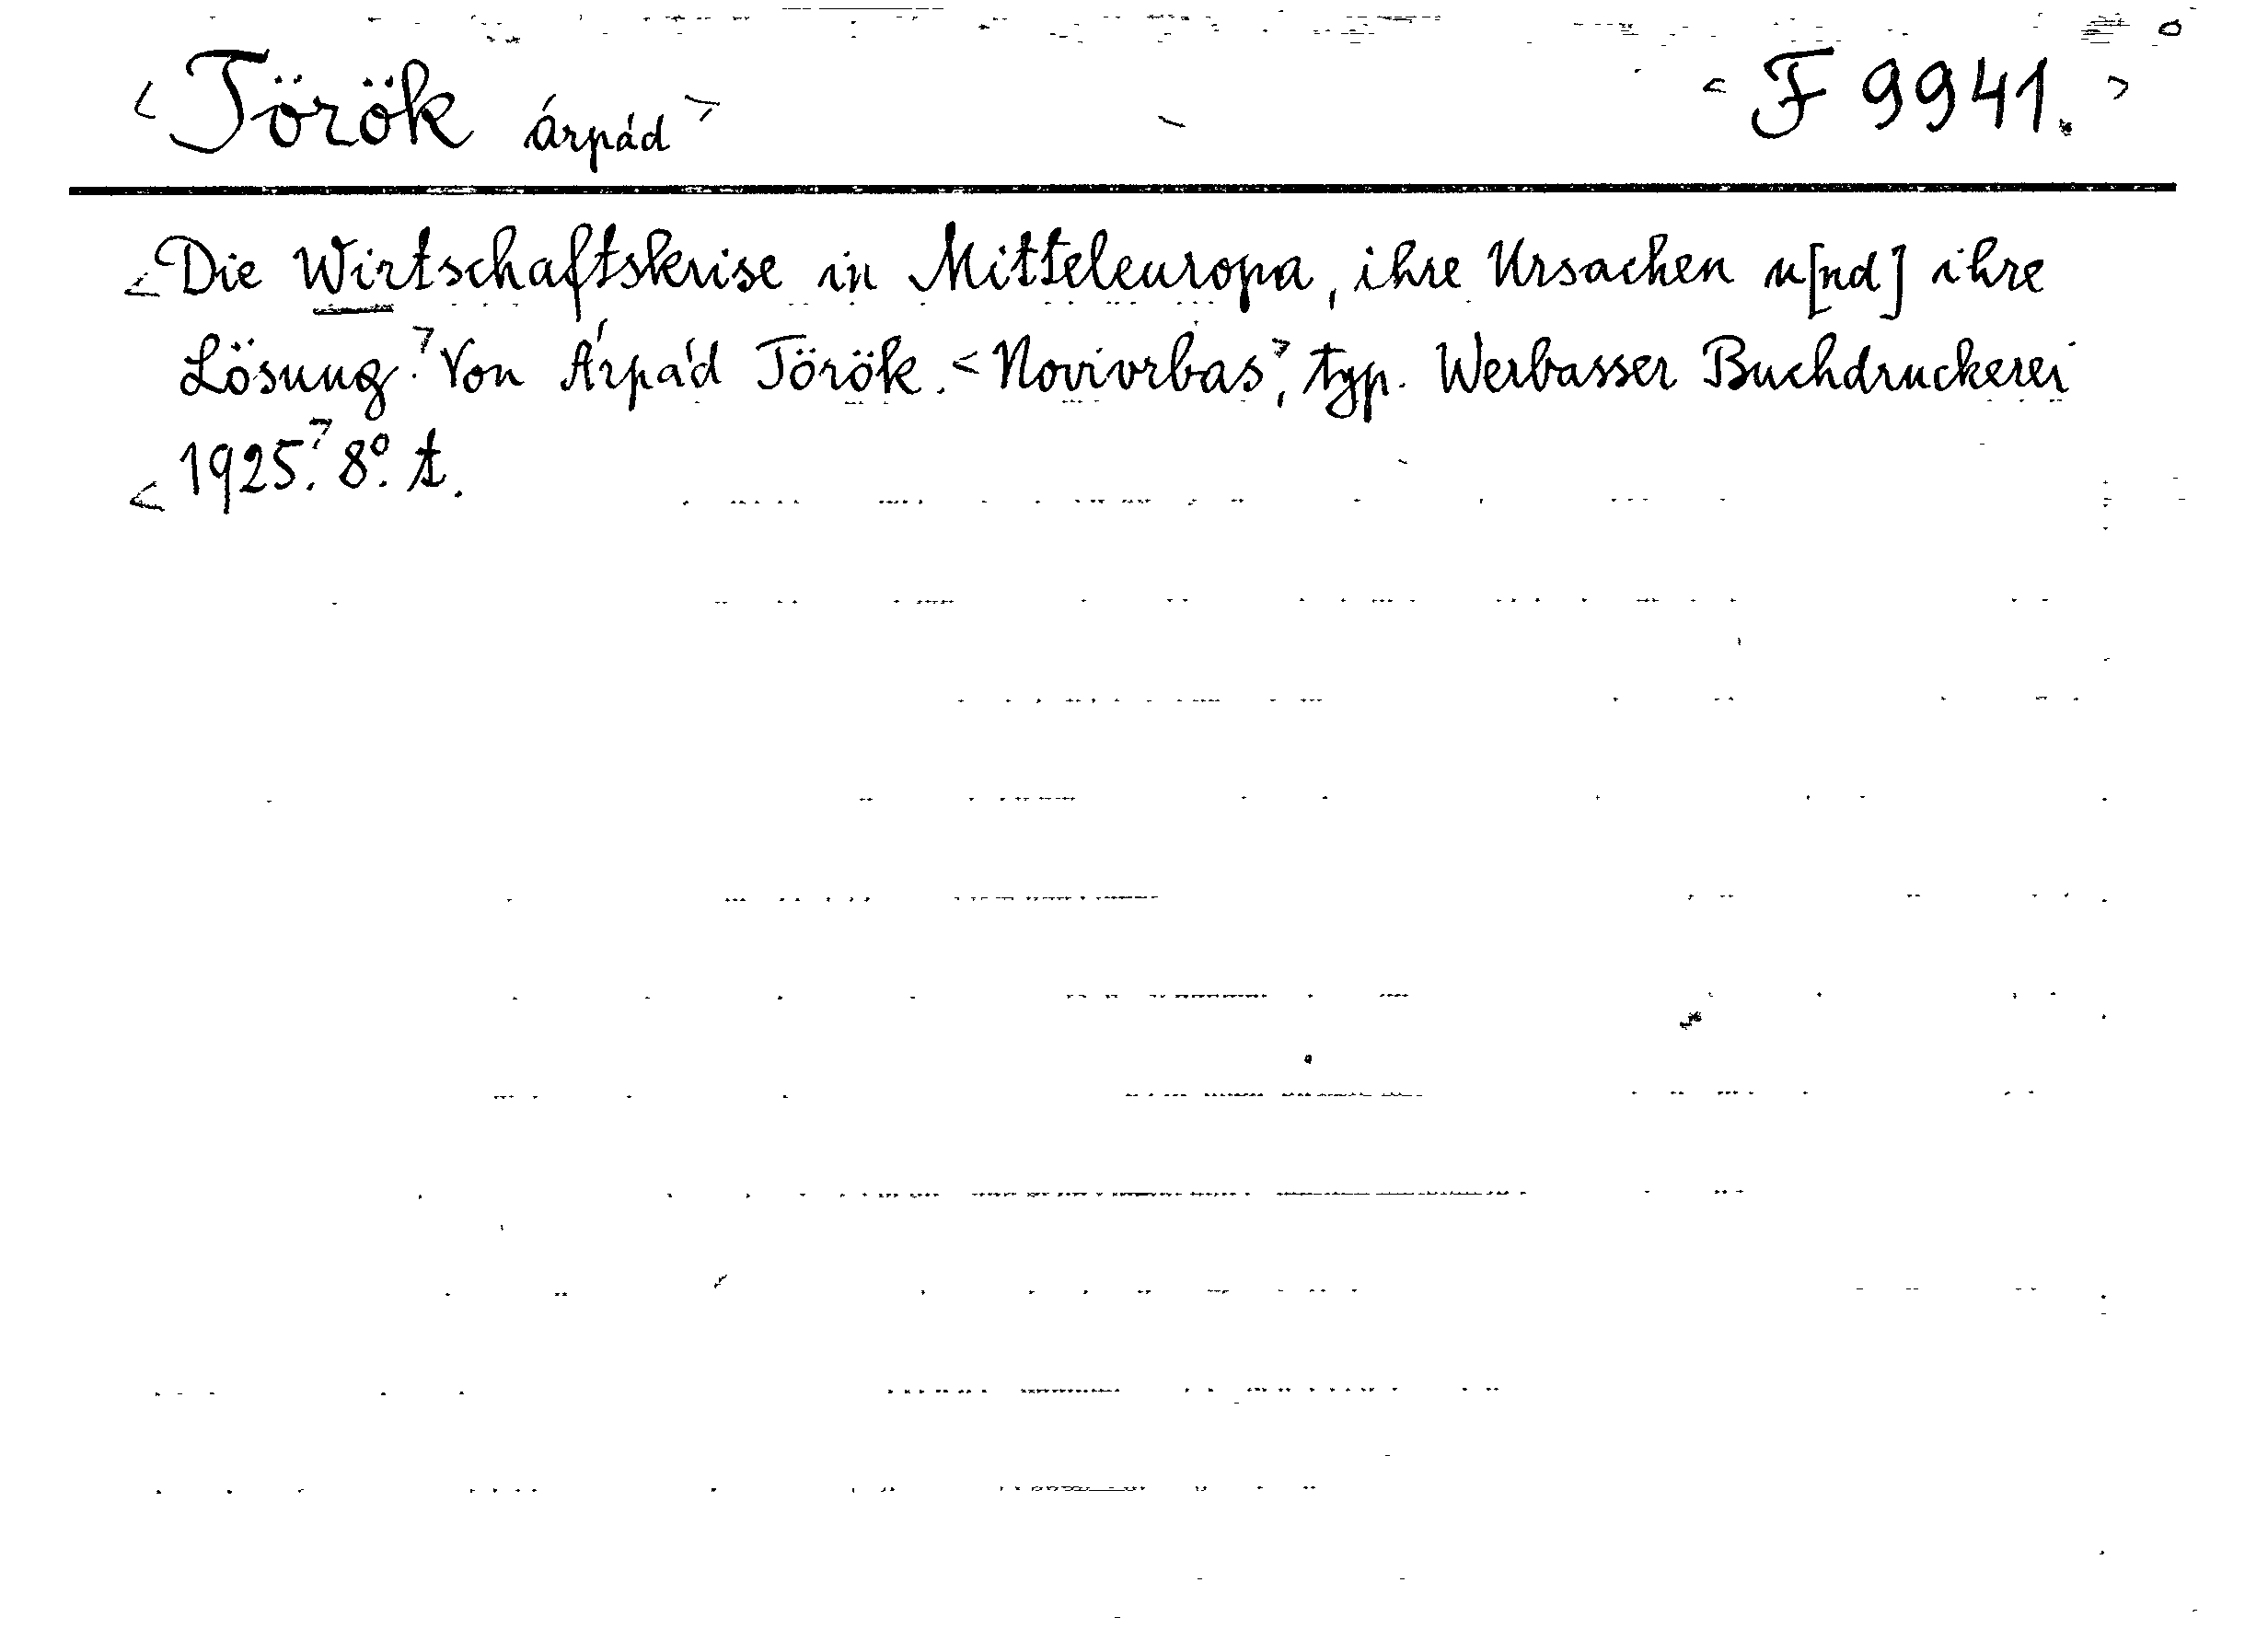 <Török Árpád> <F 9941.>
<Die Wirtschaftskrise in Mitteleuropa, ihre Ursachen u[nd] ihre
Lösung.> Von Árpád Török. <Novivrbas>, typ. Werbasser Buchdruckerei
<1925.> 8°. t.